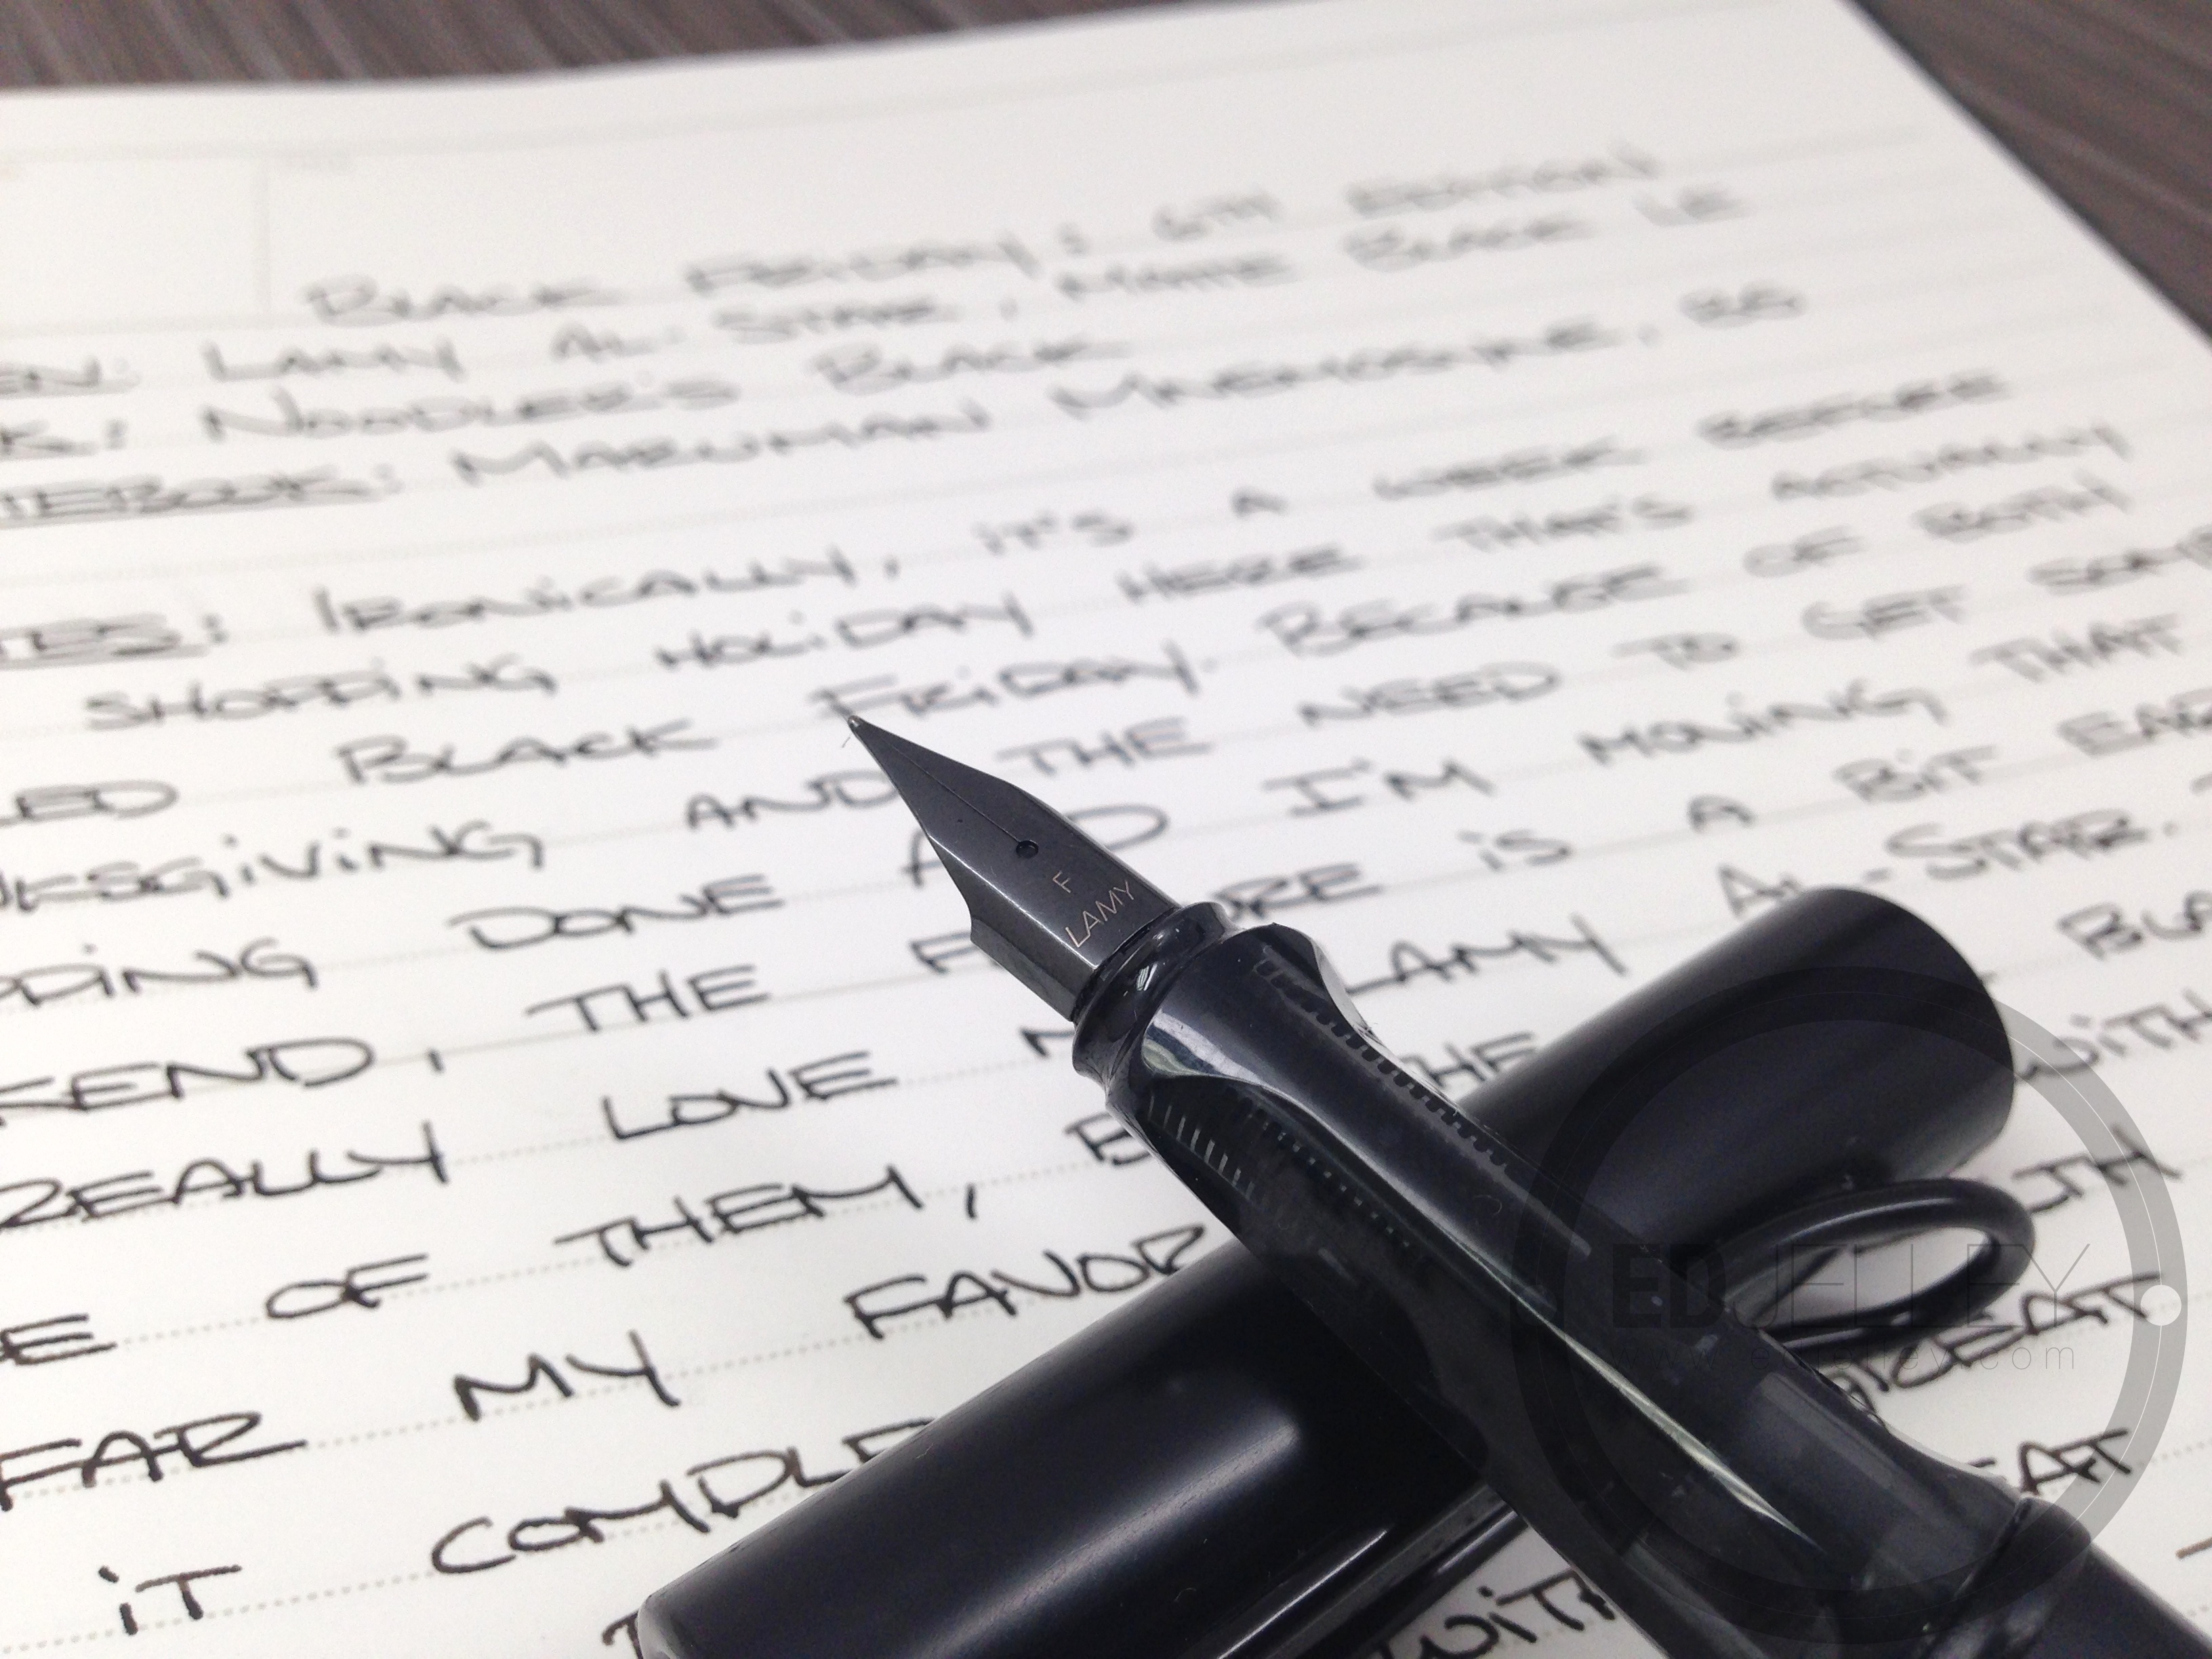 BLACK FRIDAY: 6TH EDITION
EN: LAMY AL-STAR, MATTE BLACK LE
K: NOODLER'S BLACK
TEBOOK: MARUMAN MNEMOSYNE, B5
TES: IRONICALLY, IT'S A WEEK BEFORE
SHOPPING HOLIDAY HERE THAT'S ACTUALLY
LED BLACK FRIDAY. BECAUSE OF BOTH
NKSGIVING AND THE NEED TO GET SOME
PPING DONE AND I'M MOVING THAT
KEND, THE F URE IS A BIT EAR
REALLY LOVE LAMY AL-STAR.
E OF THEM, THE BLA
FAR MY FAVOR WITH
IT COMPLE GREAT
WITH
F
LAMY
ED JELLEY
www.edjelley.com